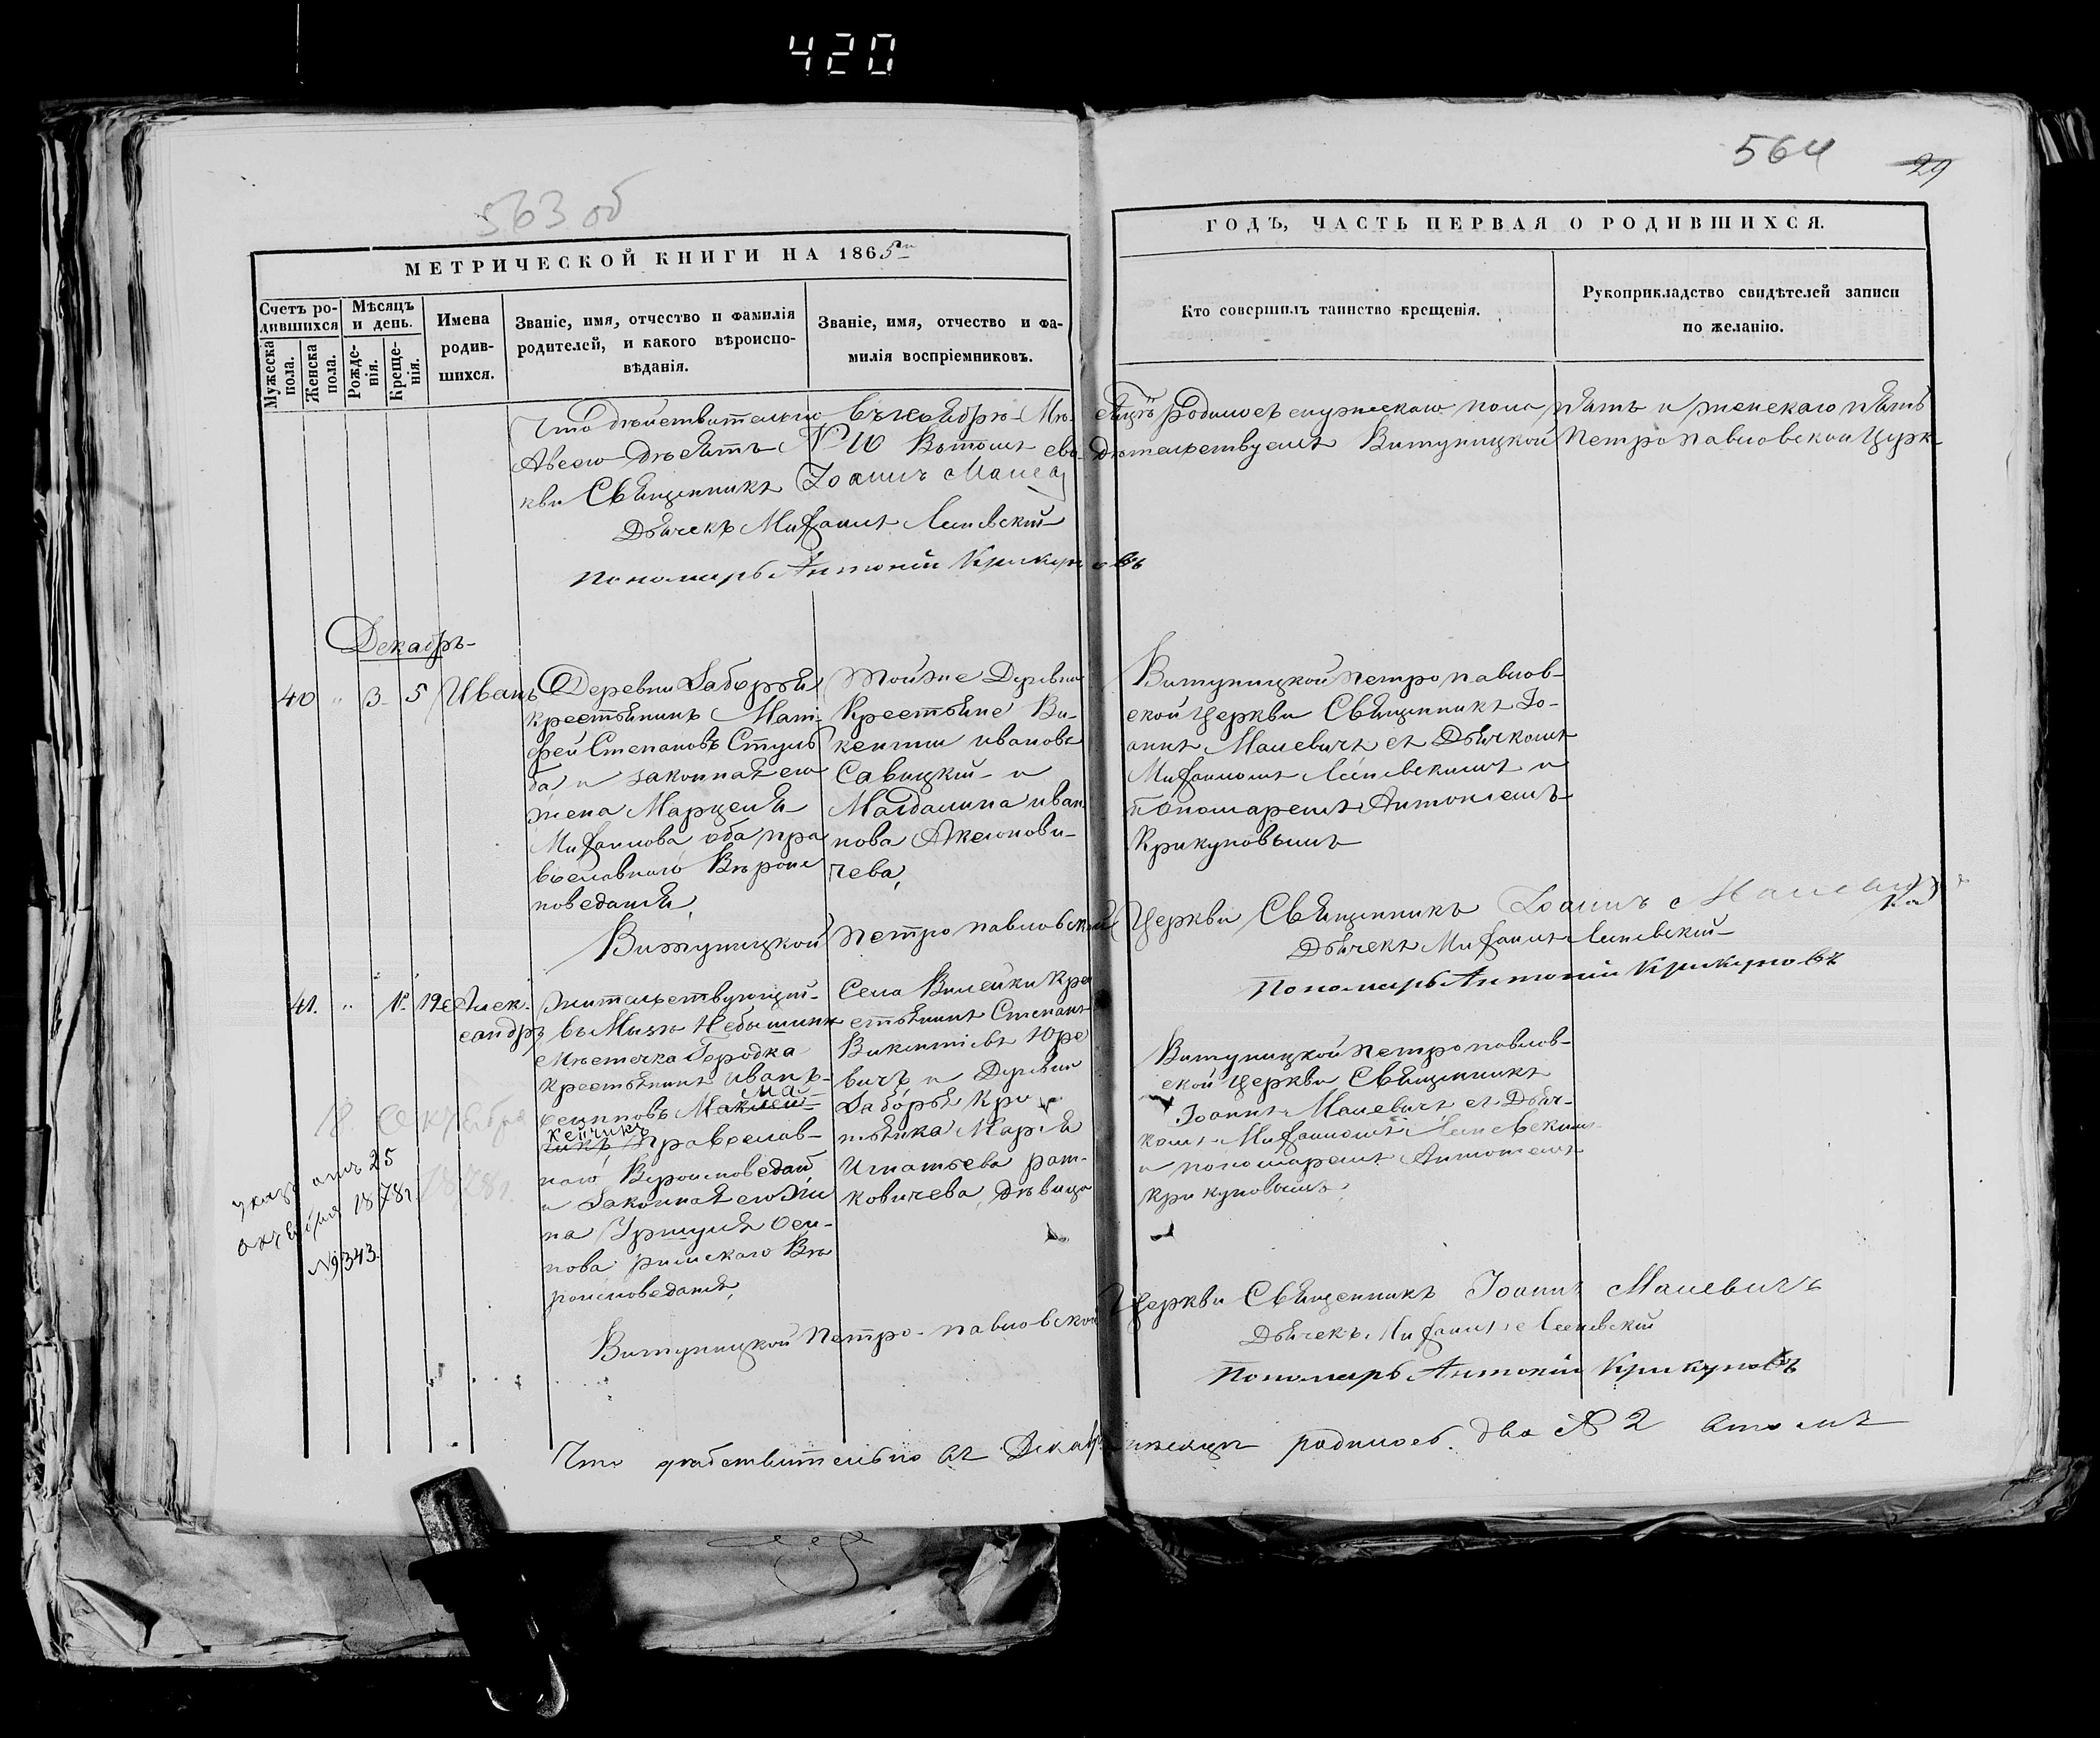 420
563 об
564
29
МЕТРИЧЕСКОЙ КНИГИ НА 1865
ГОДЪ, ЧАСТЬ ПЕРВАЯ О РОДИВШИХСЯ.
Счетъ ро-
дившихся
Мужеска
пола.
Женска
пола.
Мѣсяцъ
и день.
Рожде-
нія.
Креще-
нія.
Имена
родив-
шихся.
Званіе, имя, отчество и фамилія
родителей, и какого вѣроиспо-
вѣданія.
Званіе, имя, отчество и фа-
милія воспріемниковъ.
Кто совершилъ таинство крещенія.
Рукоприкладство свидѣтелей записи
по желанію.
Что дѣйствительно въ ноябрѣ Мѣ-сяцѣ Родилось мужескаго пола пять и женскаго пять
Авсего дѣсять № 10 Втомъ сви-дѣтельствуемъ Витуницкой Петропавловской Церк-
кви Священникъ Іоаннъ
Дьячекъ Мифаилъ
Пономарь Антоній Крикуновъ
Декабрь
40 " 3 5 Иванъ
Деревни Заборья
крестьянинъ Мат-
фей Степановъ Стуль
ба и законная его
жена Марцеля
Мифаилова оба пра
вославнаго Вѣроис
поведания,
Тойже Деревни
Крестьяне Ви-
кентии Ивановъ
Савицкій и
Магдалина Иван
нова Аксюнови-
чева,
Витуницкой Петропавлов-
ской Церкви Священникъ Іо-
аннъ Малевичъ съ Дьячкомъ
Мифаиломъ и
пономаремъ Антониемъ
Крикуновымъ
Витуницкой Петропавловской Церкви Священникъ Іоаннъ Малевичъ
Дьячекъ Мифаилъ
Пономарь Антоній Крикуновъ
41. " 1 19 Алек-
сандръ
Жительствующий
въ Мызѣ Небышин
Мѣстечка Городка
Крестьянинъ Иванъ
Осиповъ
Ма
кейчикъ
Православ-
наго Вероисповедан
и Законная его Же
на Уршуля Оси-
пова римскаго Вѣ
роисповедания,
Села Вилейки Кре
стьянинъ Степанъ
Викентіевъ Юре
вичъ и Деревни
Заборья Кре
стьянка Марья
Игнатьева рат-
ковичева, дѣвица
Витуницкой Петропавлов-
ской Церкви Священникъ
Іоаннъ Малевичъ съ Дьяч-
комъ Мифаиломъ
и пономаремъ Антониемъ
Крикуновымъ
указъ отъ 25
октября 1878г.
№ 9343.
Витуницкой Петро-павловской Церкви Священникъ Іоаннъ Малевичъ
Дьячекъ Мифаилъ
Пономарь Антоній Крикуновъ
Что действительно въ Декабрѣ месяцѣ родилось два № 2 втомъ